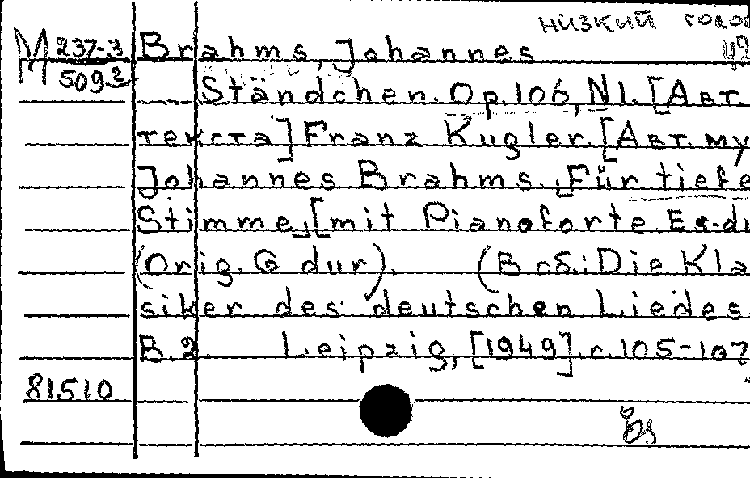 низкий голос
M 237-3 Brahms, Johannes
509.2 Ständchen. Op.106, N1. [Авт.
текста] Franz Kugler. [Авт. му
Johannes Brahms. Für tiefe
Stimme, [mit Pianoforte Es-du
(Orig. G dur). (В сб.: Die Kla
siker des deutschen Liedes
B. 2 Leipzig, [1949]. с. 105-107
81510